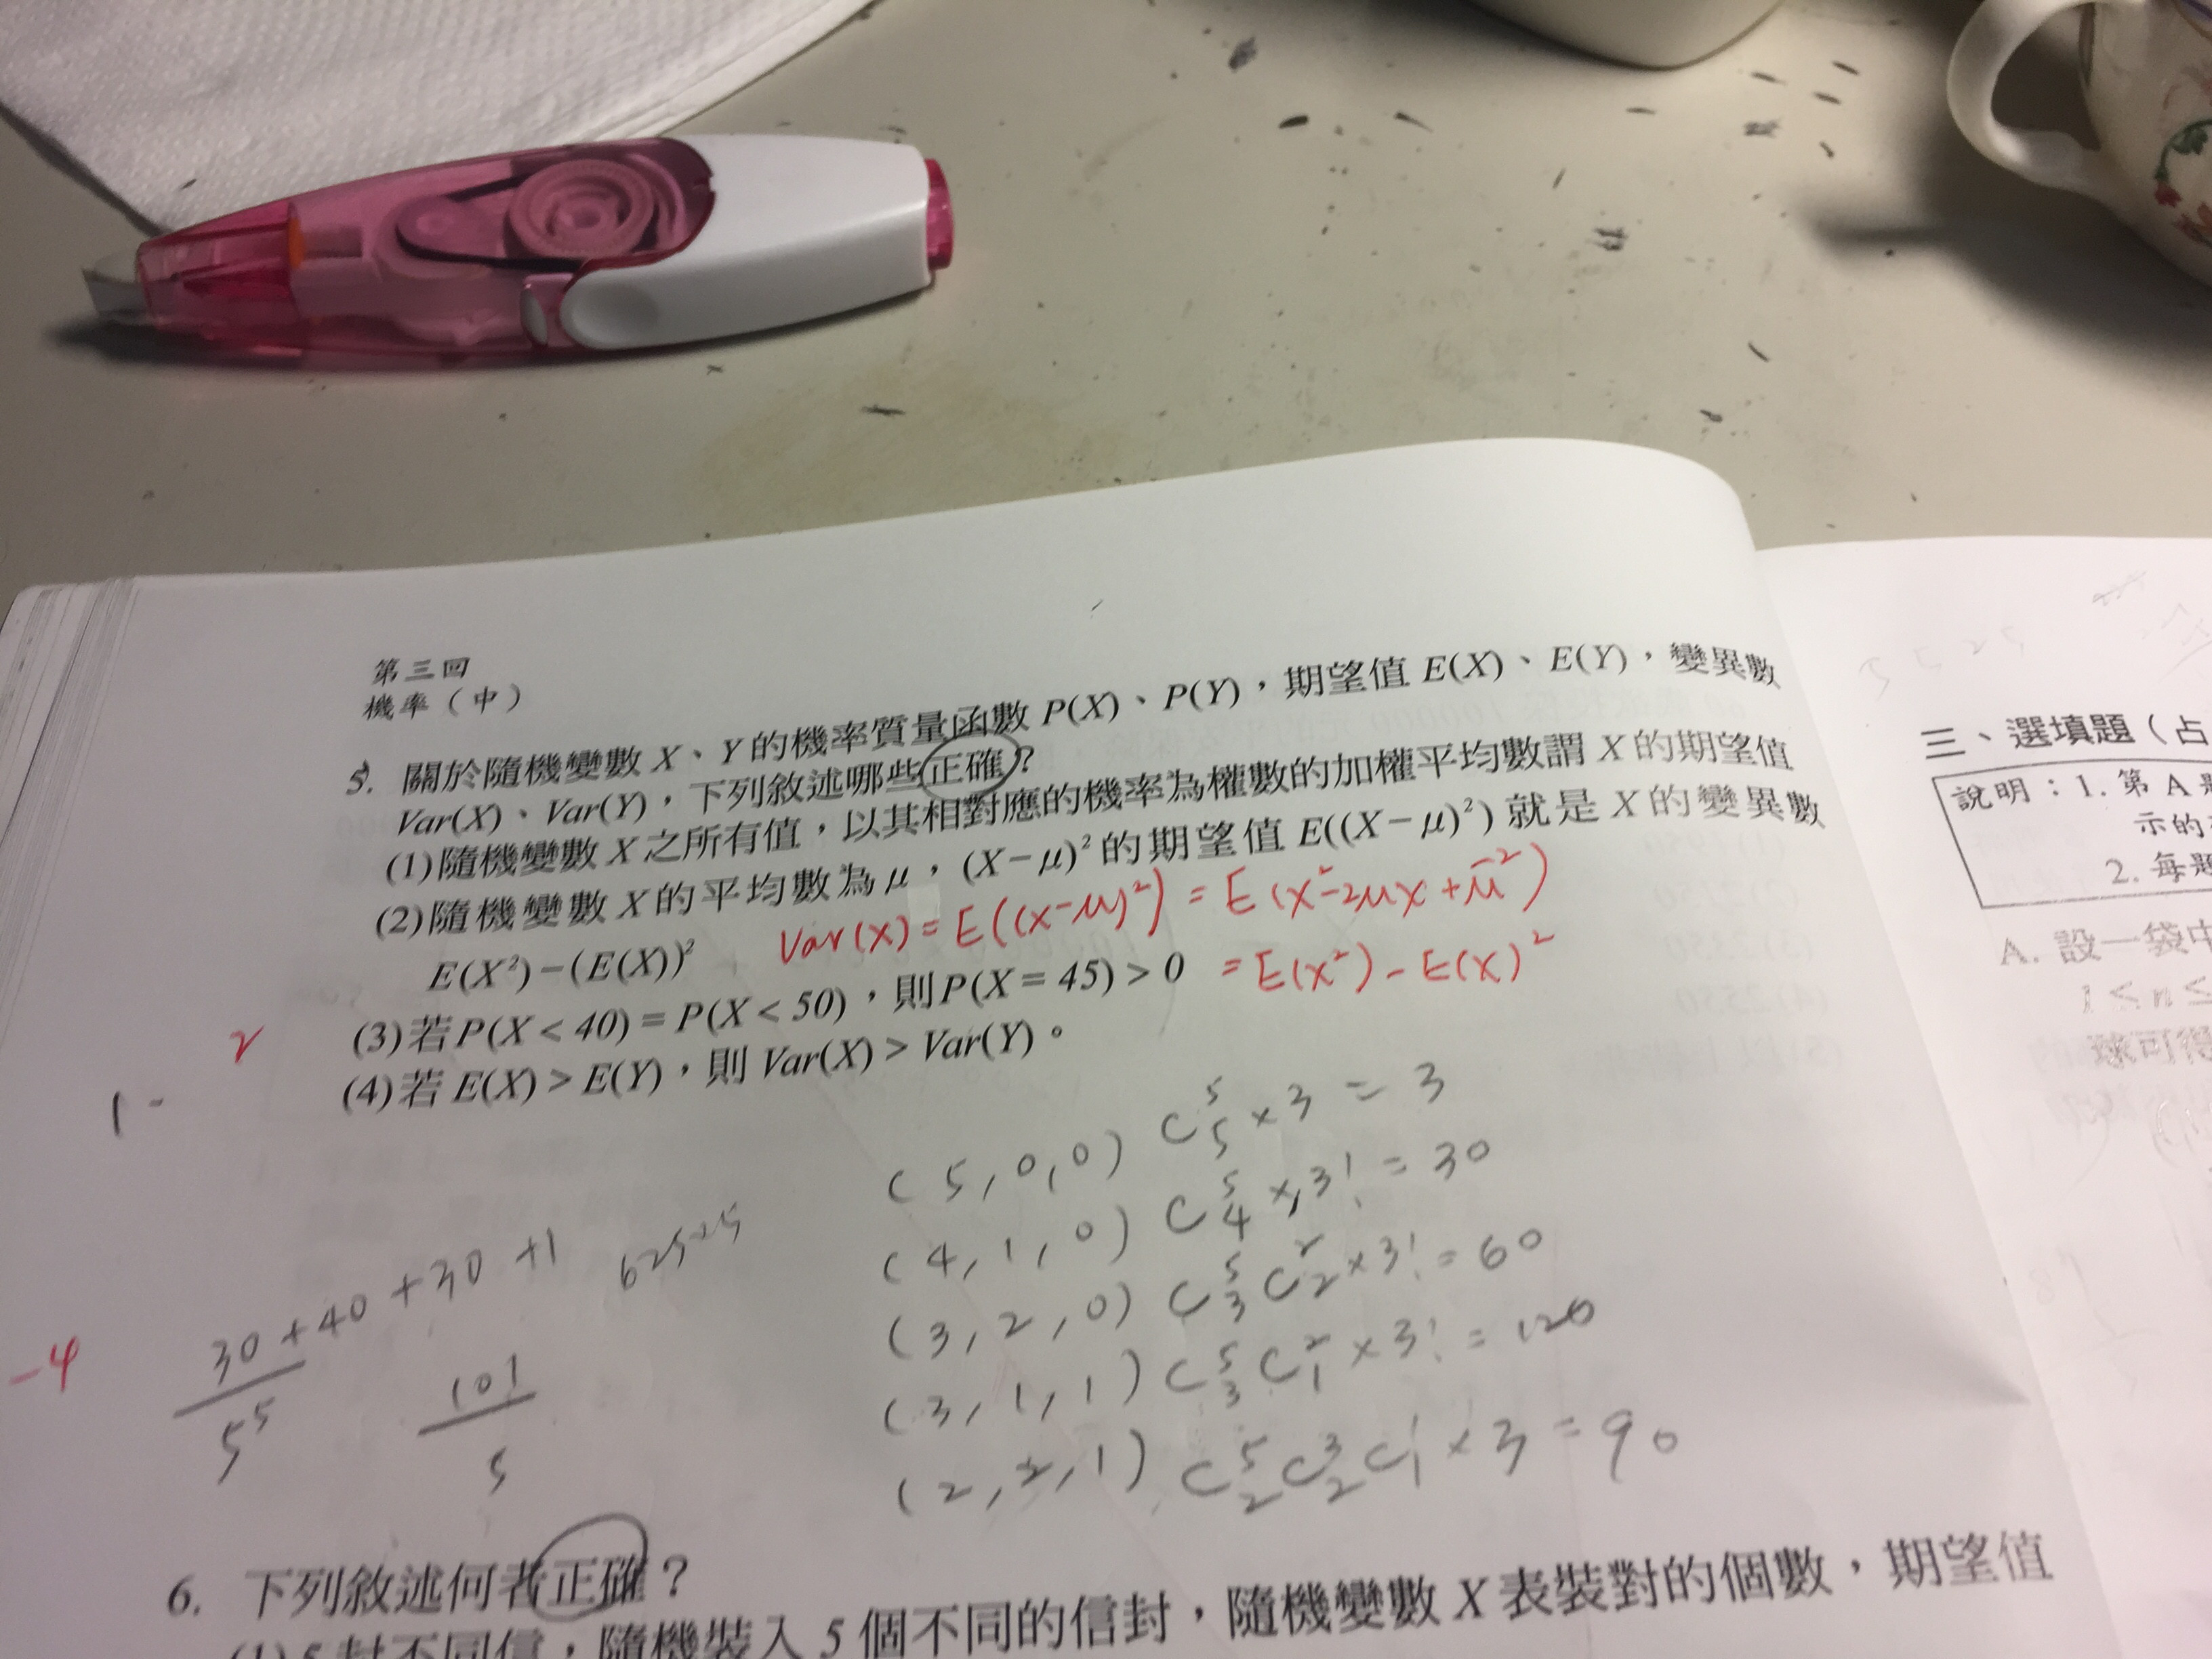 第三回
機率(中)
5. 關於隨機變數 X、Y 的機率質量函數 P(X)、P(Y),期望值 E(X)、E(Y),變異數
Var(X)、Var(Y),下列敘述哪些正確?
(1)隨機變數 X 之所有值,以其相對應的機率為權數的加權平均數謂 X 的期望值
(2)隨機變數 X 的平均數為 μ,(X−μ)² 的期望值 E((X−μ)²) 就是 X 的變異數
Var(X) = E((X-μ)²) = E(X²-2μX+μ²)
E(X²)−(E(X))²
= E(X²) - E(X)²
(3)若 P(X<40)=P(X<50),則 P(X=45)>0
(4)若 E(X)>E(Y),則 Var(X)>Var(Y)。
1 -
(5,0,0) C⁵₅×3 = 3
(4,1,0) C⁵₄×3! = 30
(3,2,0) C⁵₃C²₂×3! = 60
(3,1,1) C⁵₃C²₁×3! = 120
(2,2,1) C⁵₂C³₂C¹₁×3 = 90
30+40+30+1
5⁵
101
5
62525
-4
6. 下列敘述何者正確?
(1)5 封不同信,隨機裝入 5 個不同的信封,隨機變數 X 表裝對的個數,期望值
三、選填題(占
說明:1. 第 A 題
示的
2. 每題
A. 設一袋中
1≤n≤
球可得